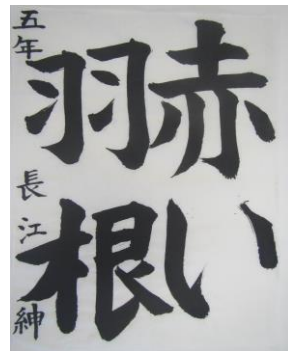 赤い
羽根
五年 長江紳